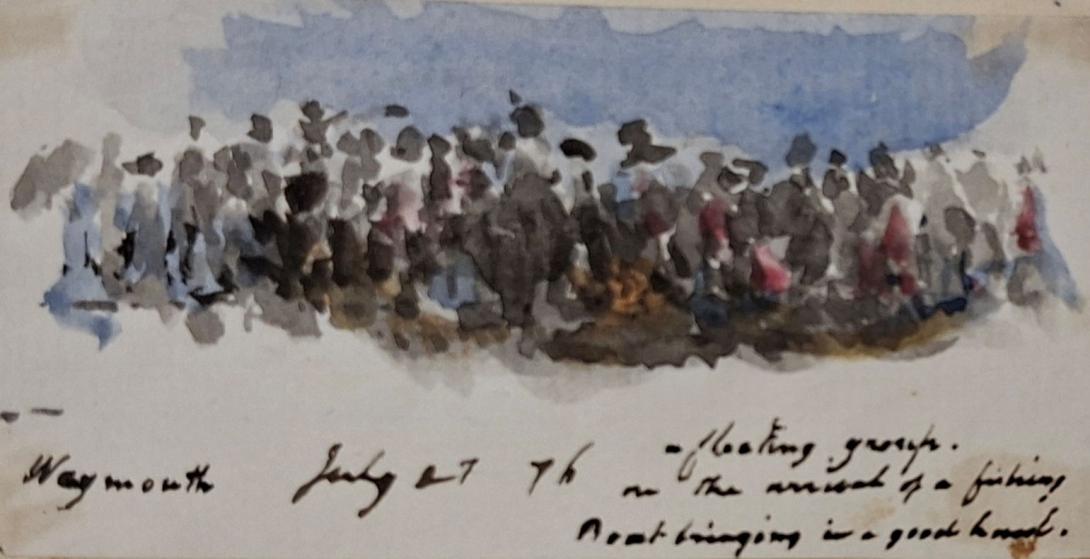 Weymouth July 27 7h
a floating group.
on the arrival of a fishing
Boat bringing in a good haul.